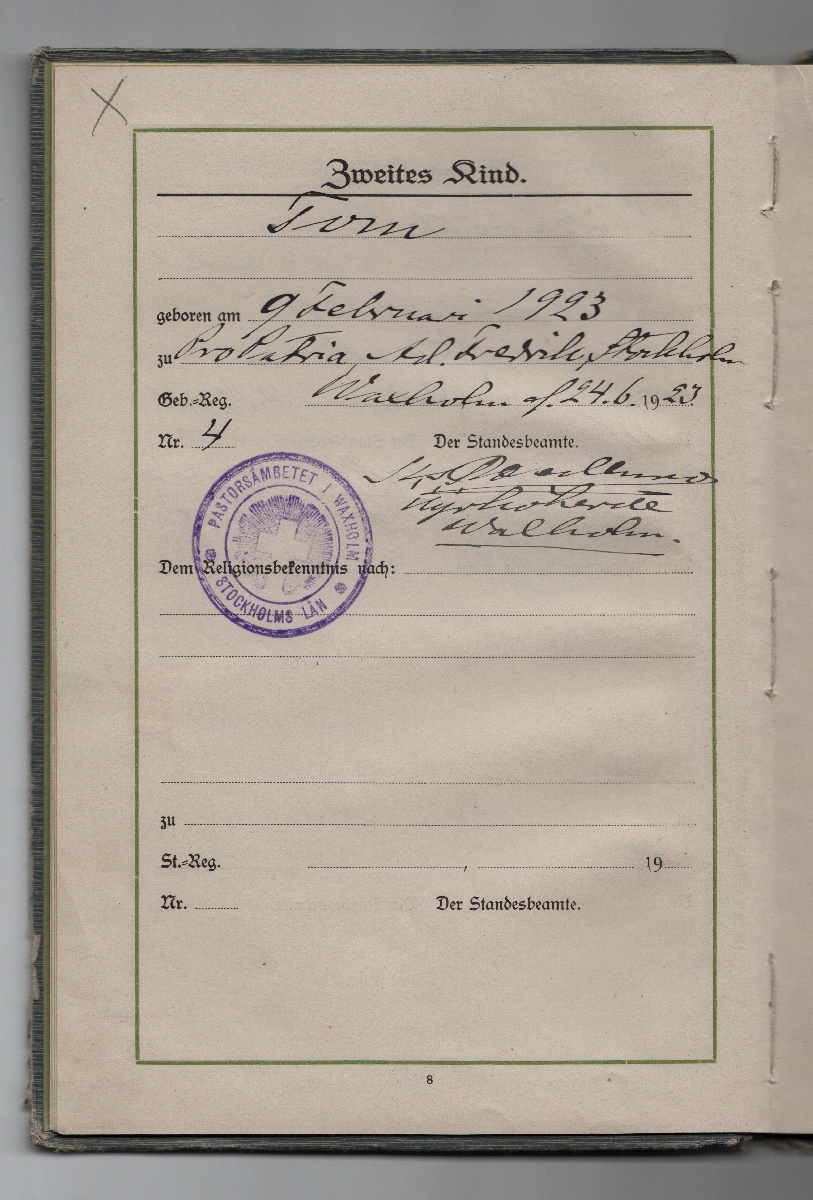 X
Zweites Kind.
Tom
geboren am 9 Februari 1923
zu Pro Patria, Ad. Fredrik, Stockholm
Geb.-Reg. Waxholm d. 24.6. 1923
Nr. 4 Der Standesbeamte.
Kyrkoherde
Waxholm.
PASTORSÄMBETET I WAXHOLM
STOCKHOLMS LÄN
Dem Religionsbekenntnis nach:
zu
St.-Reg. , 19
Nr. Der Standesbeamte.
8